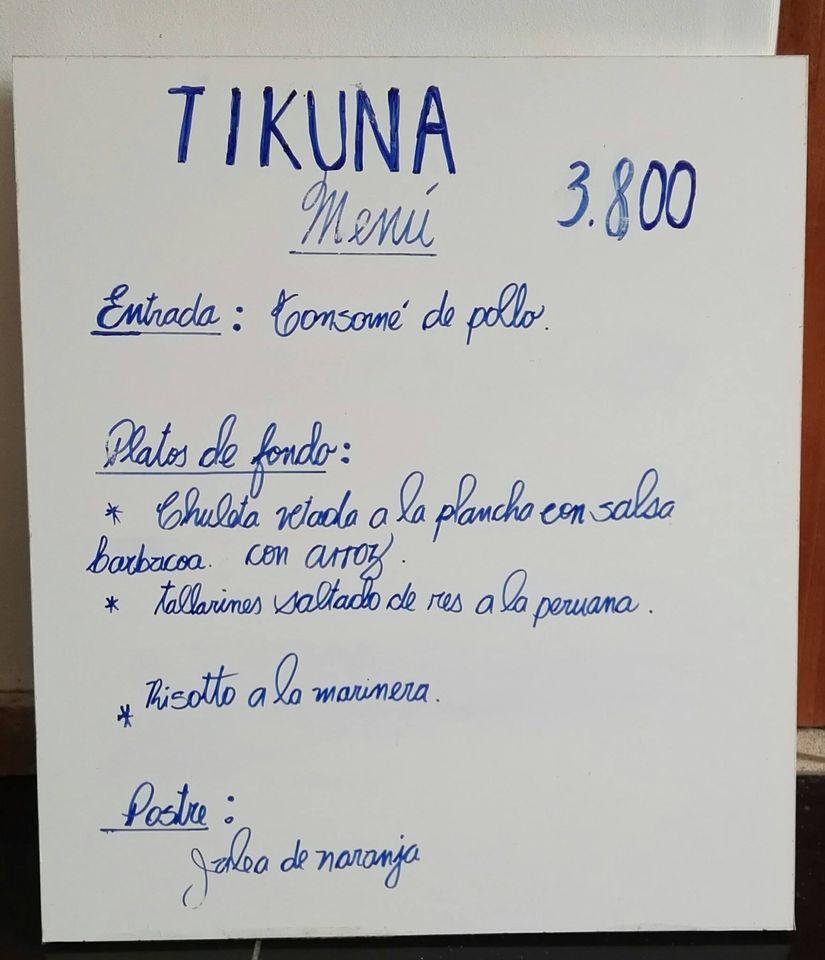 TIKUNA
Menú
3.800
Entrada: Consomé de pollo.
Platos de fondo:
* Chuleta vetada a la plancha con salsa
barbacoa. con arroz.
* tallarines saltado de res a la peruana.
* Risotto a la marinera.
Postre:
Jalea de naranja